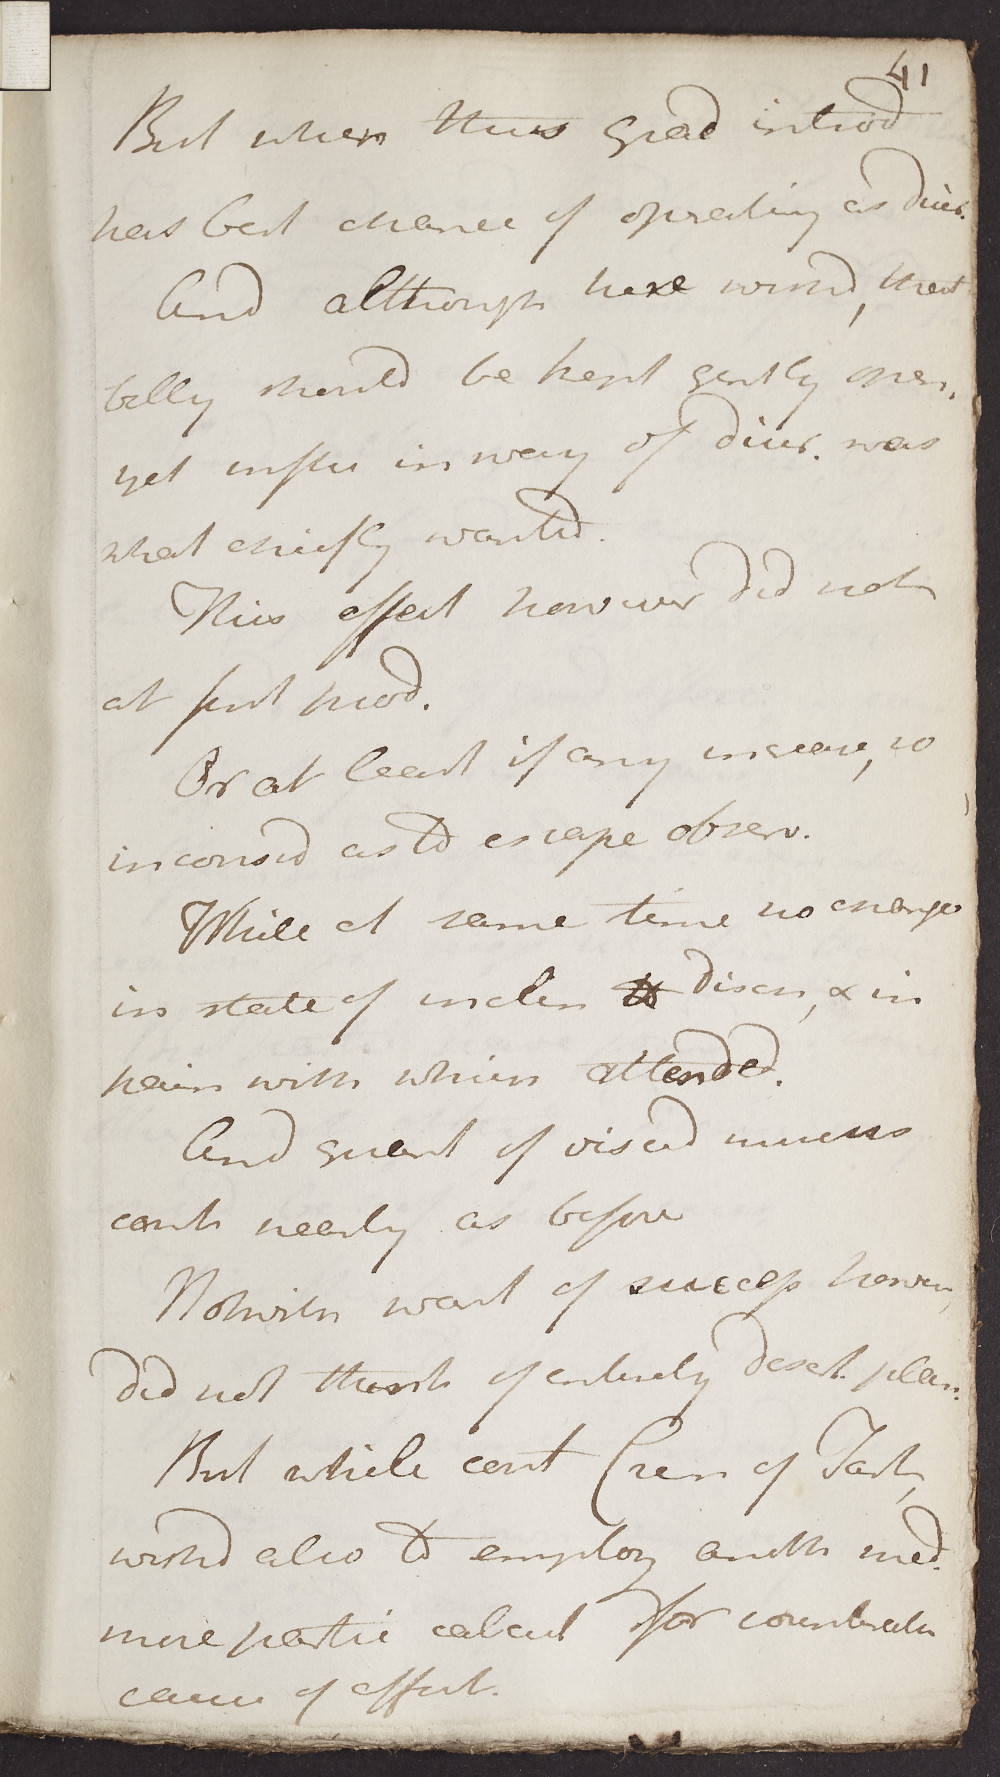 41
But when thus grad introd
has best chance of operating as diur.
And although here wishd, that
belly should be kept gently open,
yet influ in way of diur. was
what chiefly wanted.
This effect however did not
at first prod.
Or at least if any increase, so
inconsid as to escape observ.
While at same time no change
in state of unclen discn, & in
pain with which attended.
And quant of viscid mucus
conts nearly as before
Notwith want of success howev,
did not think of entirely desert. plan.
But while cont Crem of Tart,
wishd also to employ anoth med.
more partic calcul for counteractn
cause of effect.